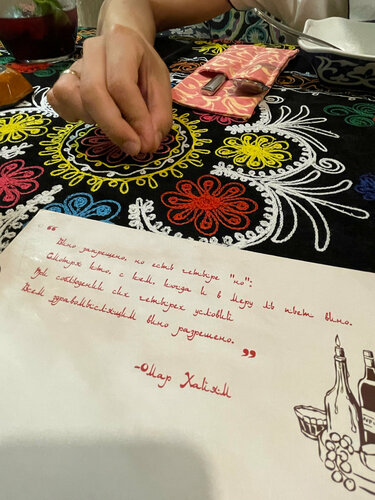 “
Вино запрещено, но есть четыре "но":
Смотря кто, с кем, когда и в меру ль пьет вино.
При соблюдении сих четырех условий
Всем здравомыслящим вино разрешено.
”
-Омар Хайям